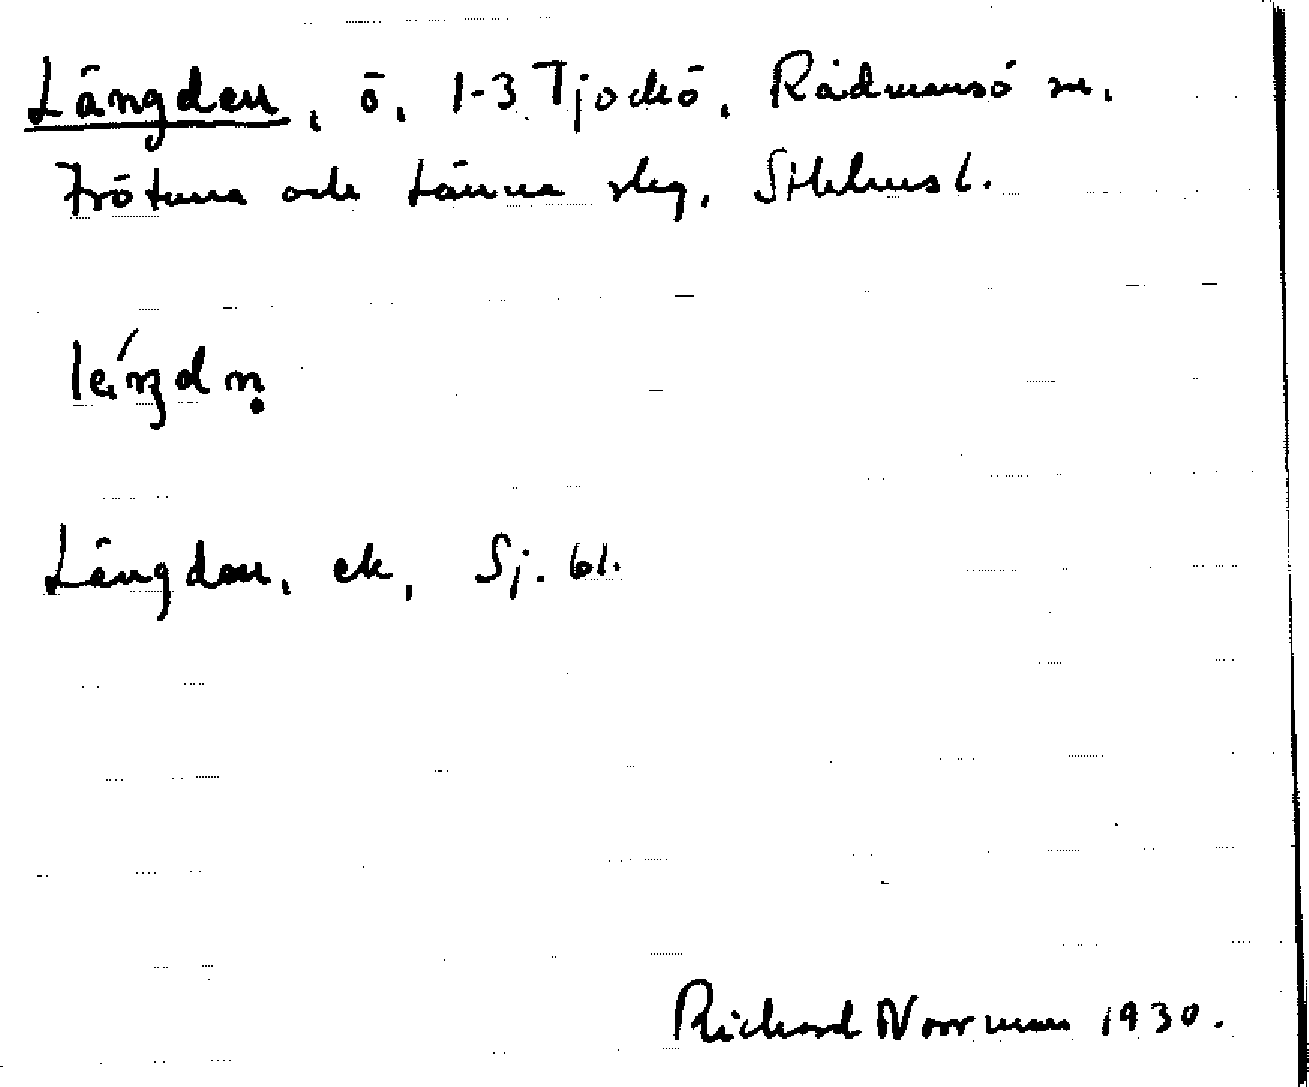 Längden, ö, 1-3 Tjockö, Rådmansö sn,
Frötuna och Länna slg, Sthlms l.
lèŋdṇ
Längden, ek, Sj. bl.
Richard Norrman 1930.